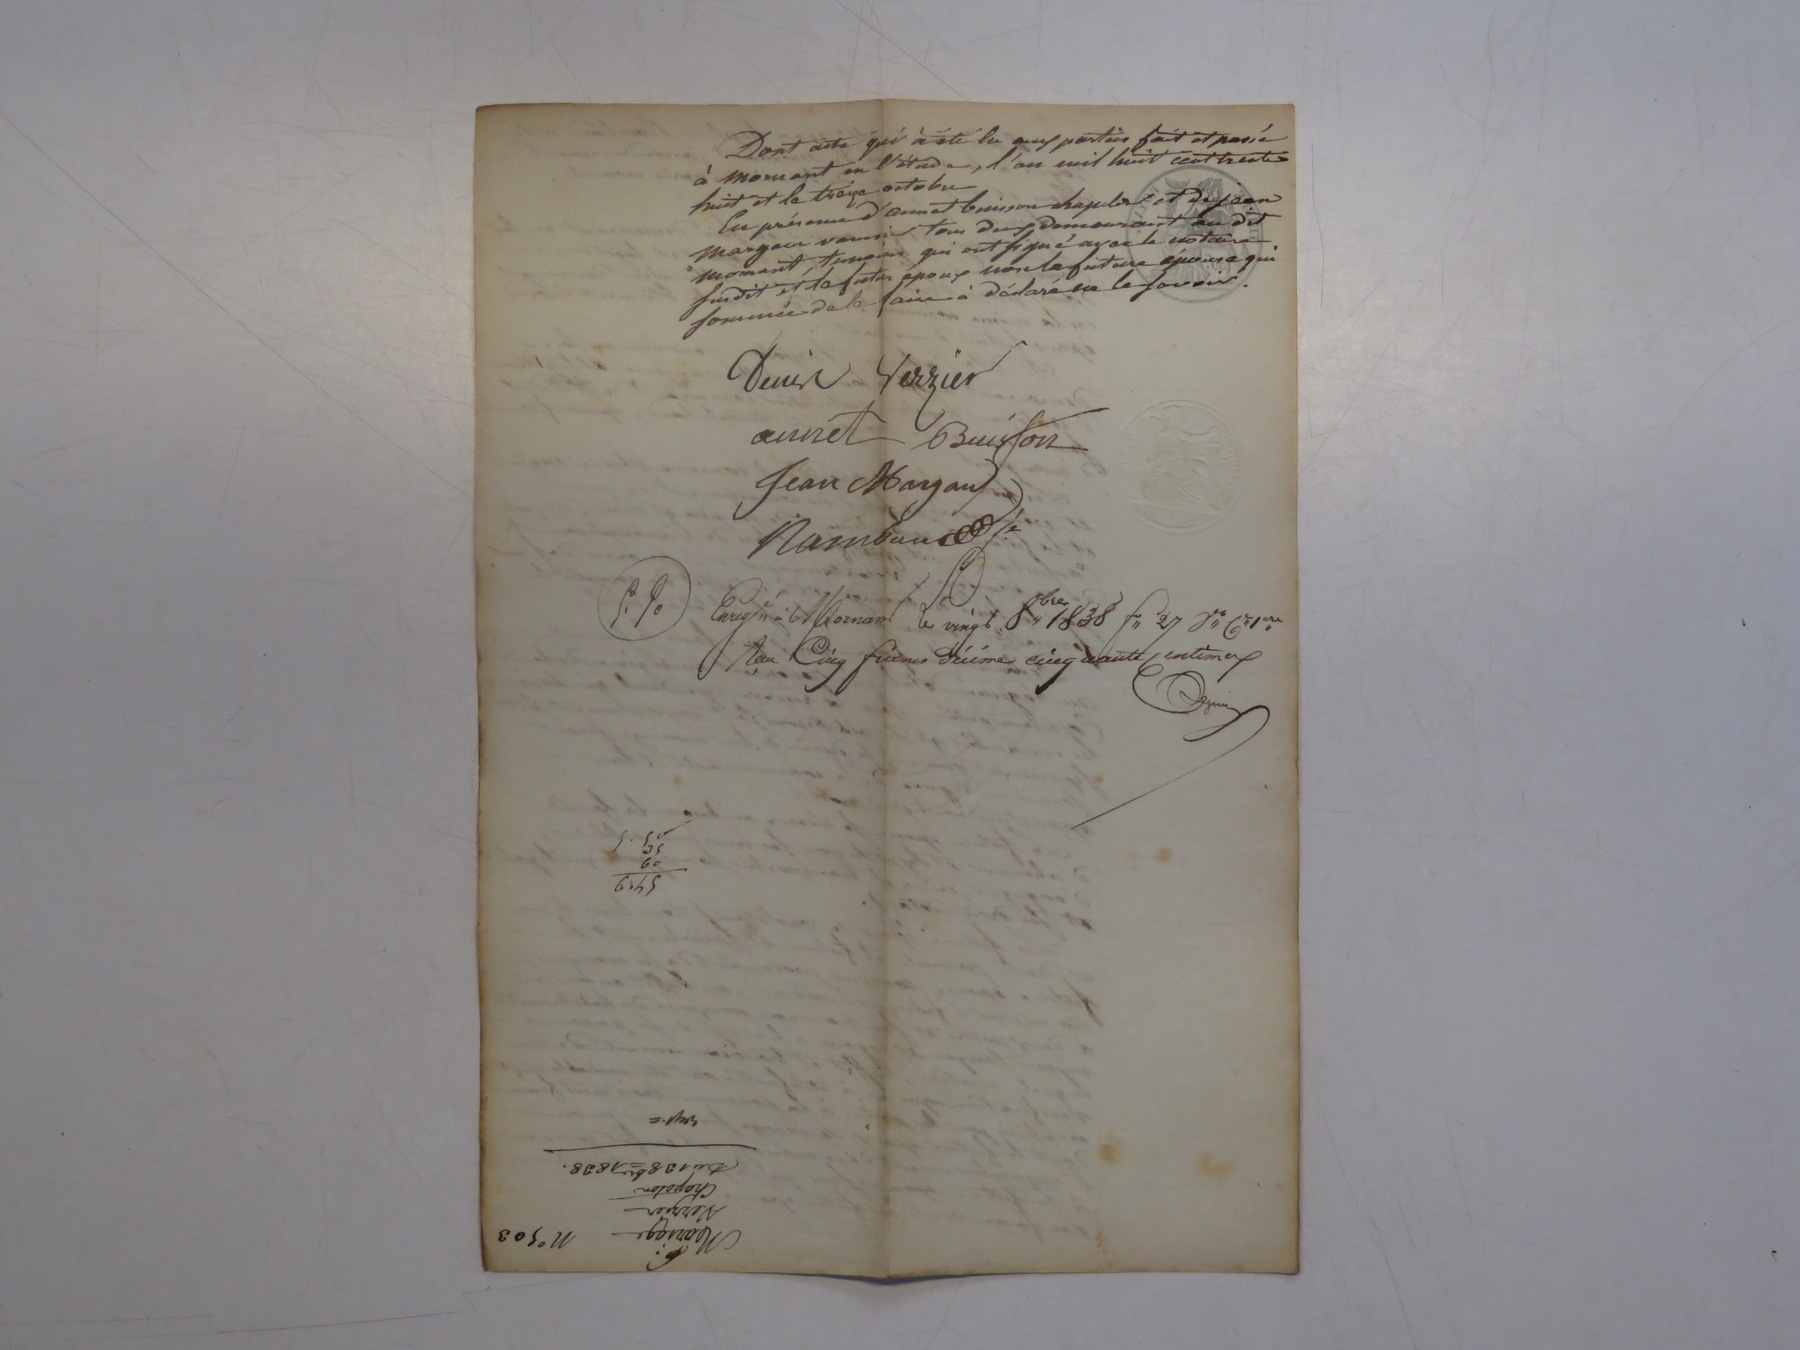 Dont acte qui a été lu aux parties fait et passé
à mornant en l'étude, l'an mil huit cent trente
huit et le treize octobre
En présence d'annet buisson chapelier et de jean
margeau tous deux demeurant au dit
mornant, temoins qui ont signé avec le notaire
susdit et le futur epoux non la future épouse qui
sommée de le faire à déclaré ne le savoir.
Denis Verzier
annet Buisson
Jean Margau
Rambaud
Enregtré à Mornant le vingt 8bre 1838 fo 27
Cinq francs décime cinquante centimes
5. 50
55
60
No 503
Mariage
Verzier
Chapolon
Du 13 8bre 1838.